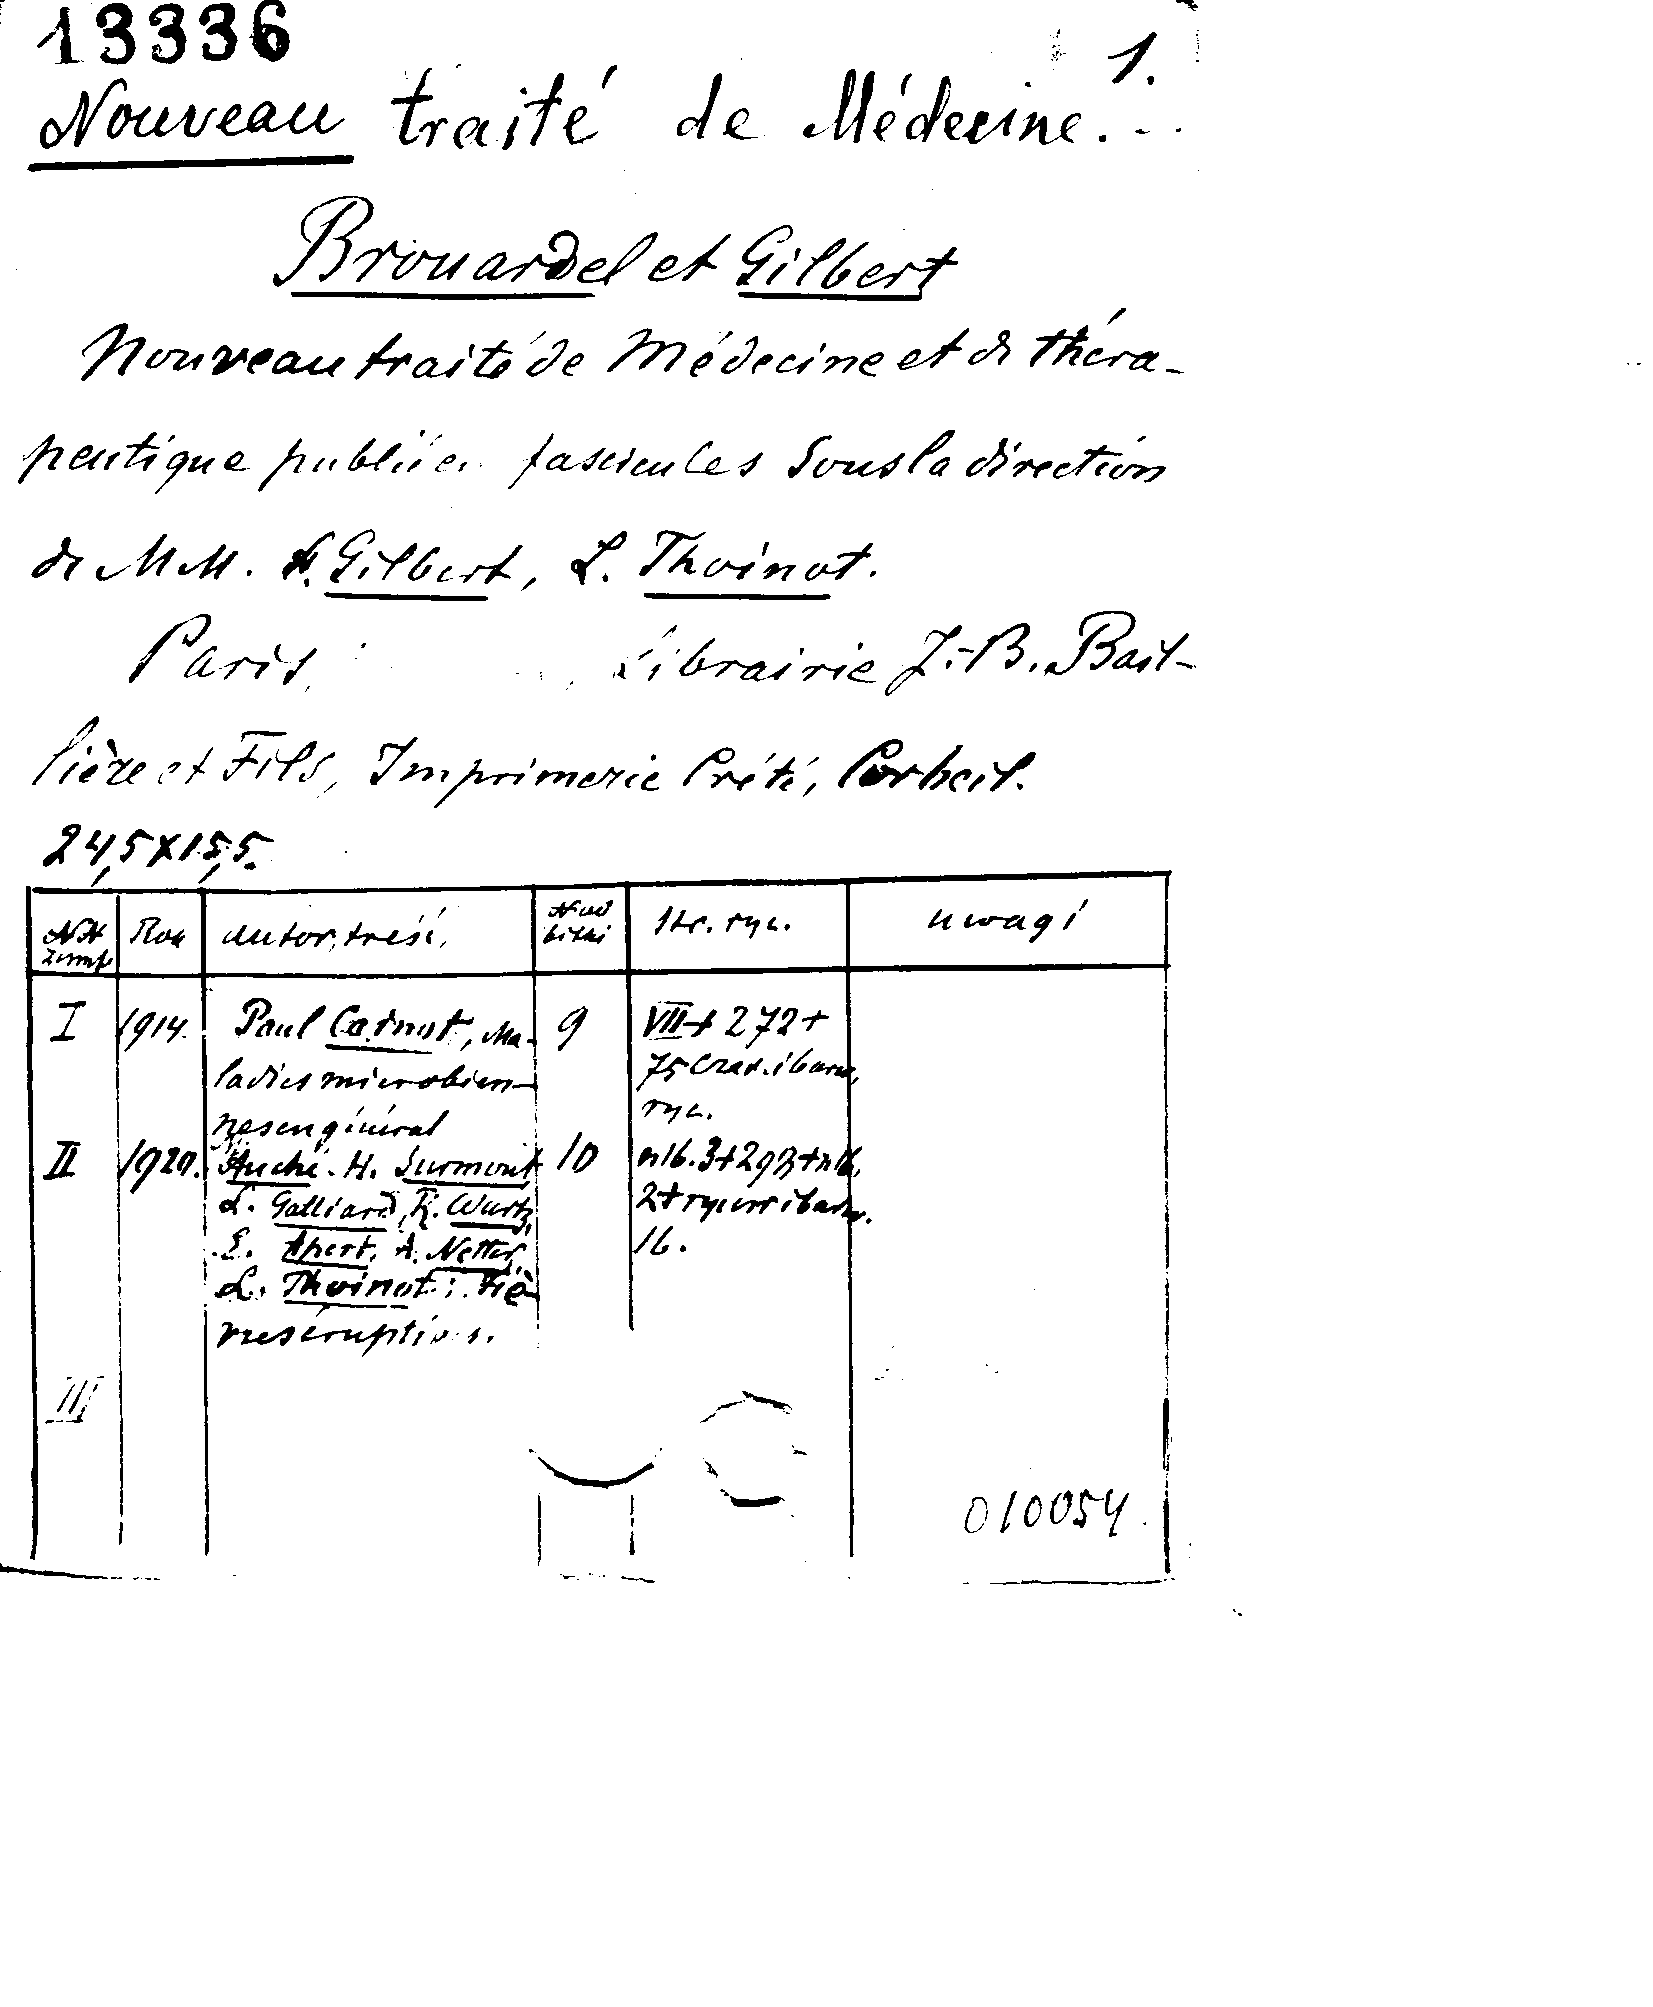 13336
1.
Nouveau traité de Médecine...
Brouardel et Gilbert
Nouveau traité de Médecine et de théra-
peutique publié en fascicules sous la direction
de MM. A. Gilbert, L. Thoinot.
Paris, Librairie J.-B. Bail-
lière et Fils, Imprimerie Crété, Corbeil.
24,5x15,5.
Rok autor, treść, Str. ryc. uwagi
I 1914. Paul Carnot, Ma- 9 VIII + 272 +
ladies microbien- 75 czar. i barw.
nes en général ryc.
II 1920. Auché. H. Surmont 10 nlb. 3+293+nlb.
L. Galliard, R. Wurtz, 2+ryc. i barw.
E. Apert, A. Netter, 16.
L. Thoinot: Fiè-
vres éruptives.
III
010054